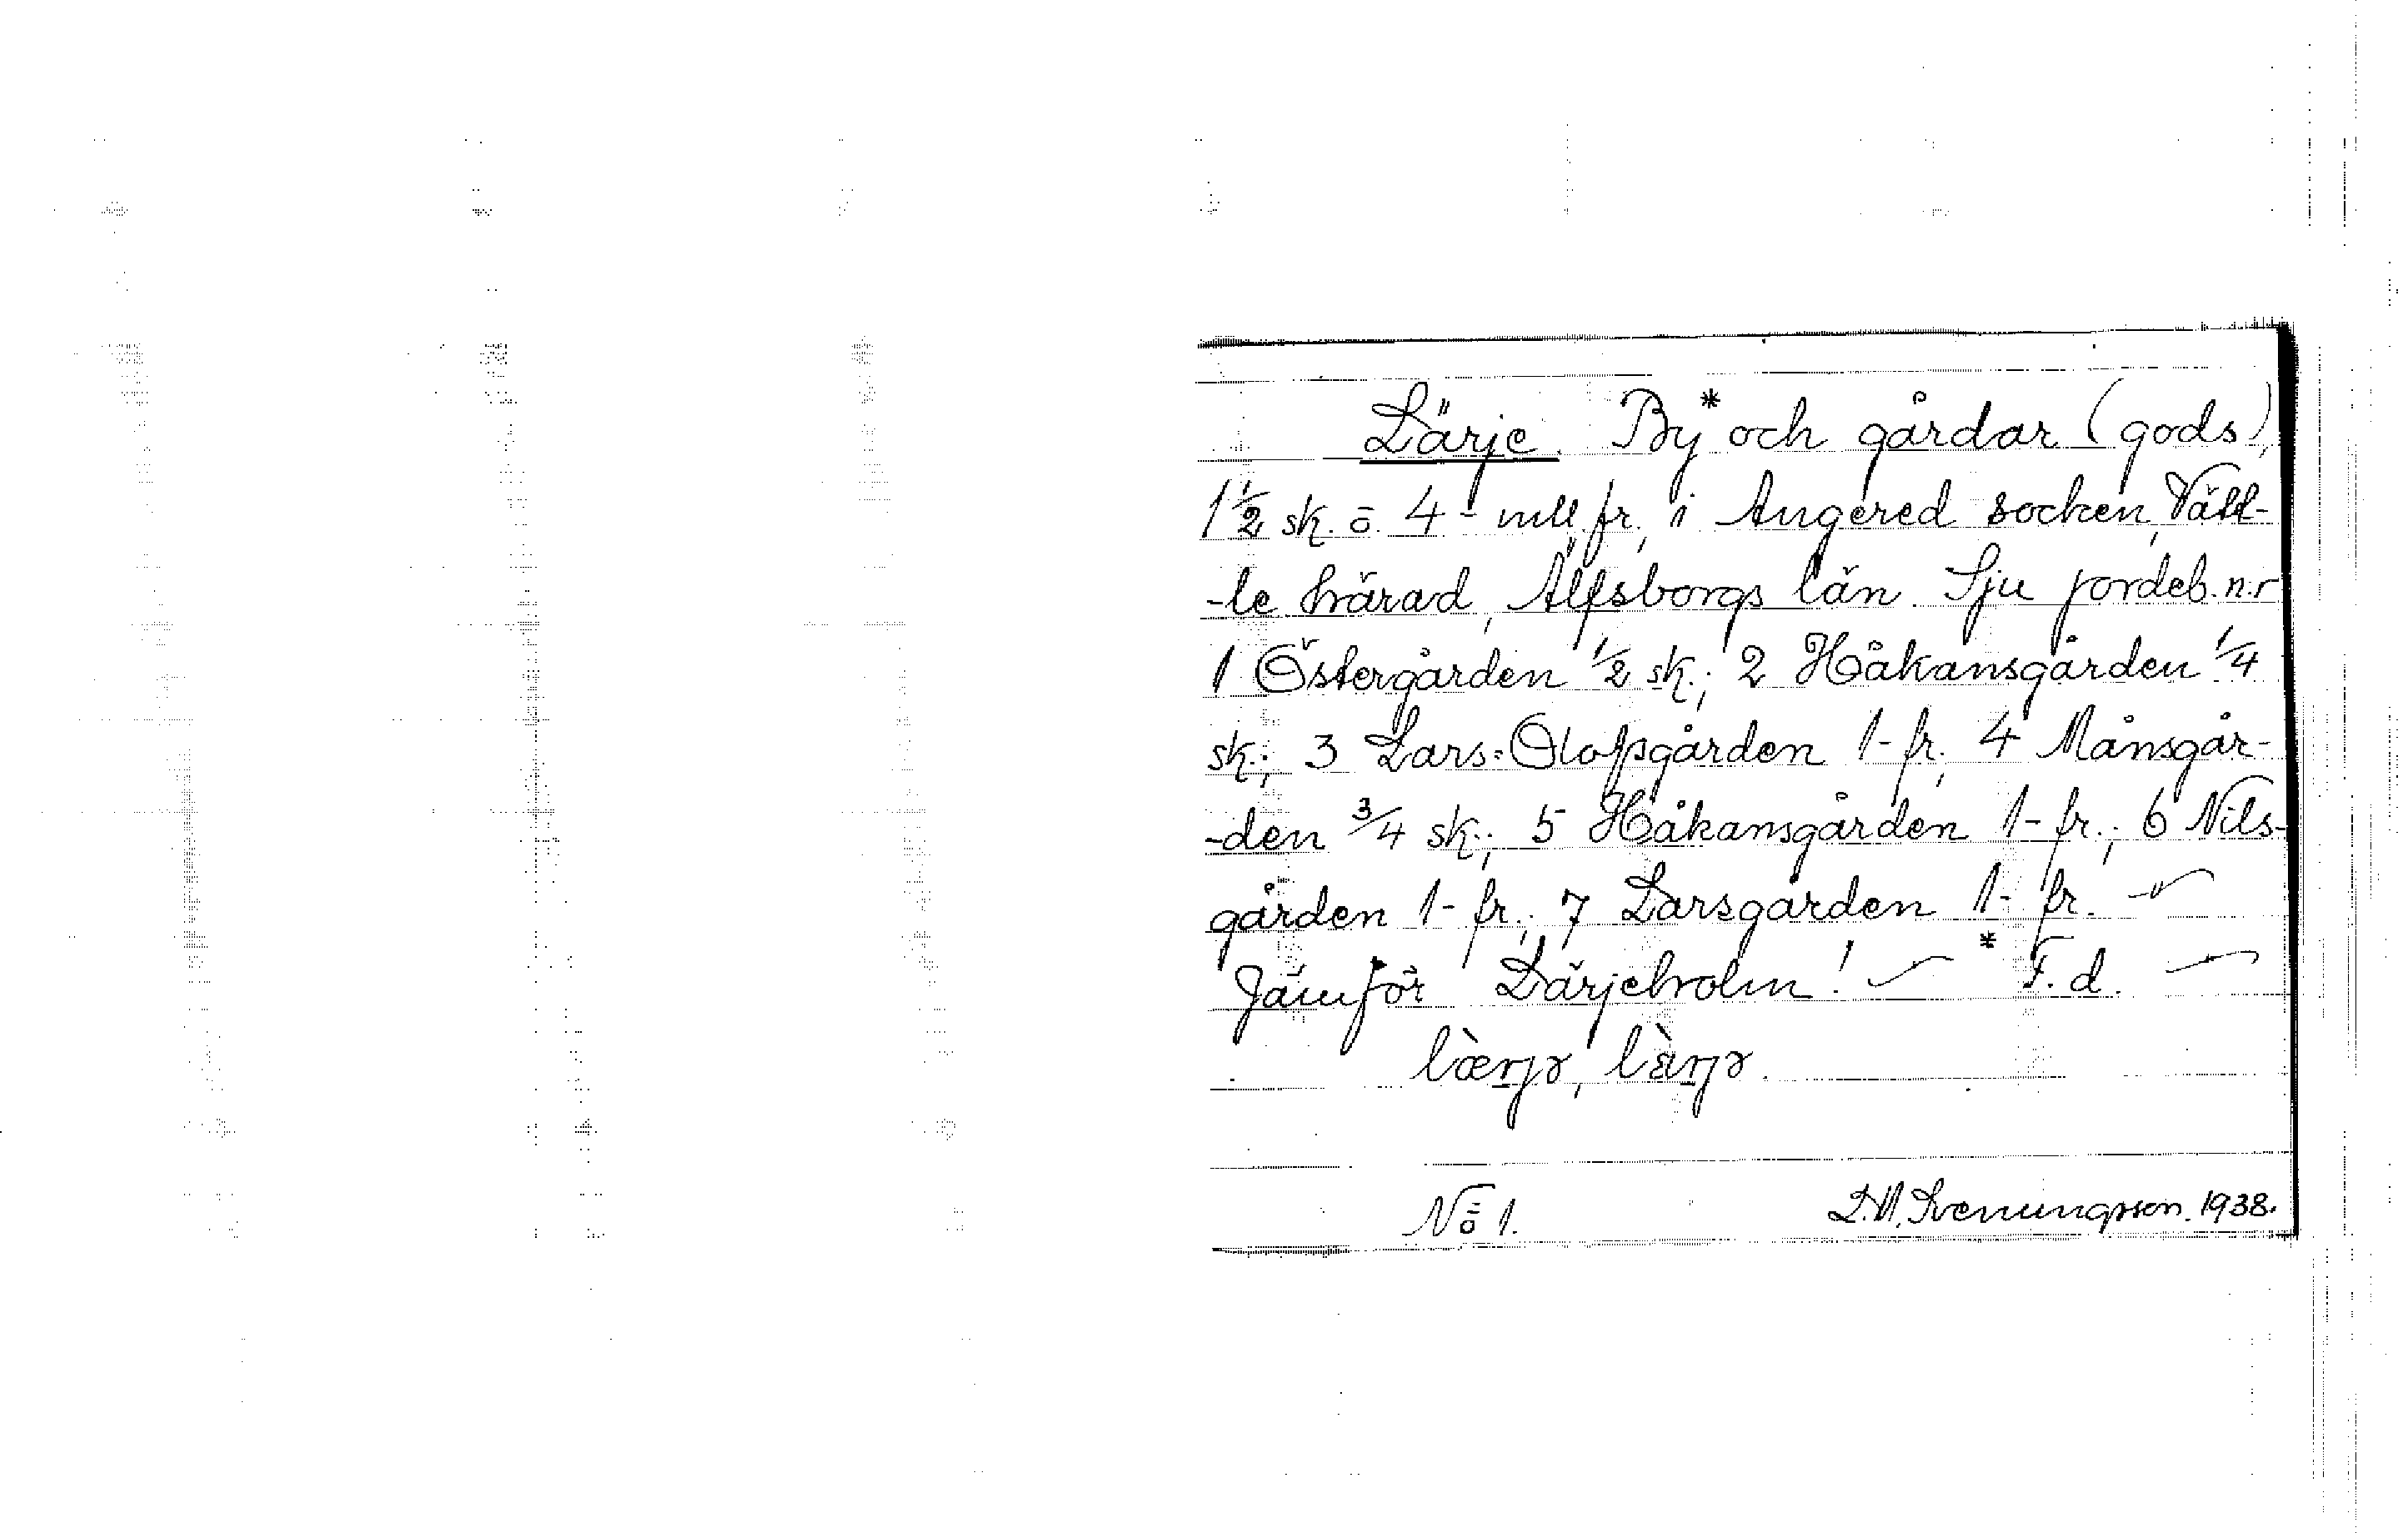 Lärje. By* och gårdar (gods),
1 1/2 sk. o. 4- mtl. fr., i Angered socken, Vätt-
-le härad, Älfsborgs län. Sju jordeb. n.r
1 Östergården 1/2 sk.; 2 Håkansgården 1/4
sk.; 3 Lars-Olofsgården 1- fr.; 4 Månsgår-
-den 3/4 sk.; 5 Håkansgården 1- fr.; 6 Nils-
gården 1- fr.; 7 Larsgården 1- fr.
Jämför Lärjeholm! * F.d.
No 1.
Svenungsson. 1938.